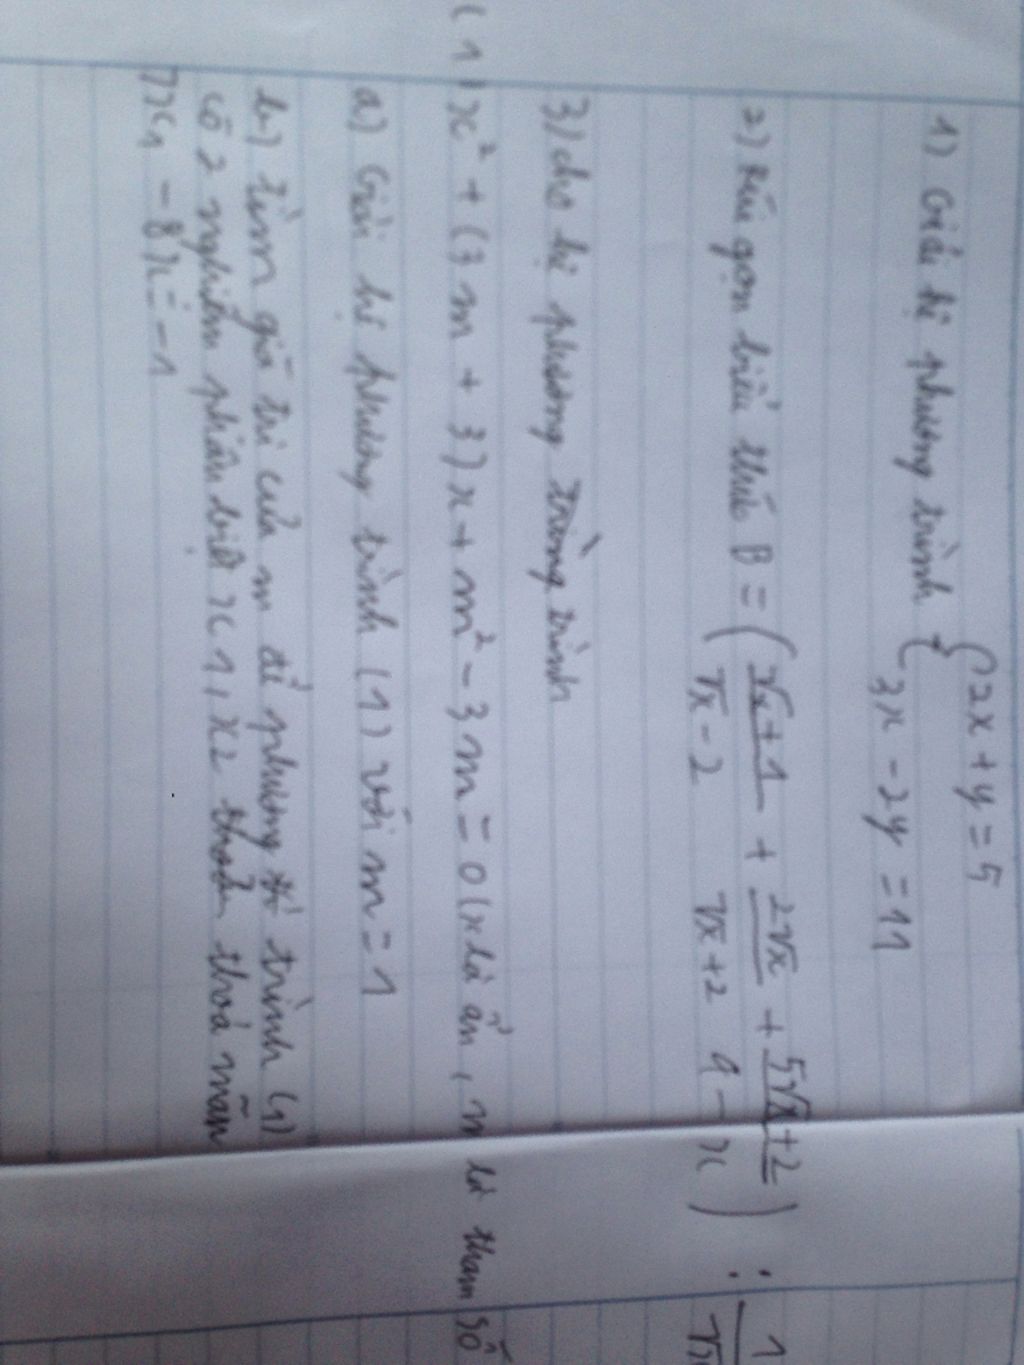 { 2x + y = 5
1) Giải hệ phương trình { 3x - 2y = 11
2) Rút gọn biểu thức B = ( √x + 1 / √x - 2 + 2√x / √x + 2 + 5√x + 2 / 4 - x ) : 1 /
3) cho hệ phương trình
(1) x² + (3m + 3)x + m² - 3m = 0 (x là ẩn, m là tham số
a) Giải hệ phương trình (1) với m = 1
b) tìm giá trị của m để phương trình (1)
có 2 nghiệm phân biệt x1, x2 thoả mãn
7x₁ - 8x = -1